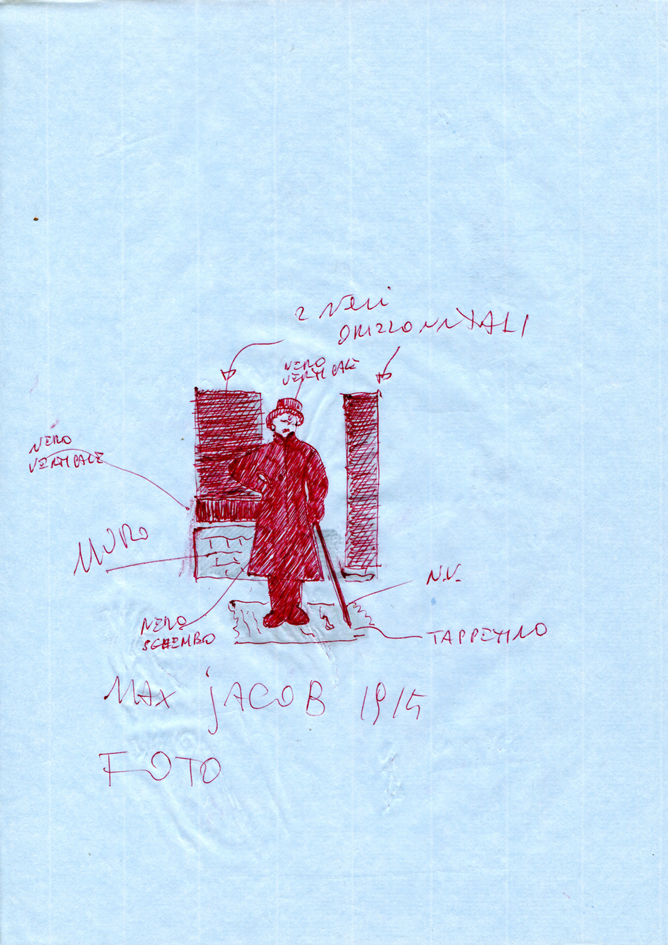 2 NERI
ORIZZONNTALI
NERO
VERTICALE
NERO
VERTICALE
MURO
N.V.
NERO
SGHEMBO
TAPPETINO
MAX jACOB 1915
FOTO